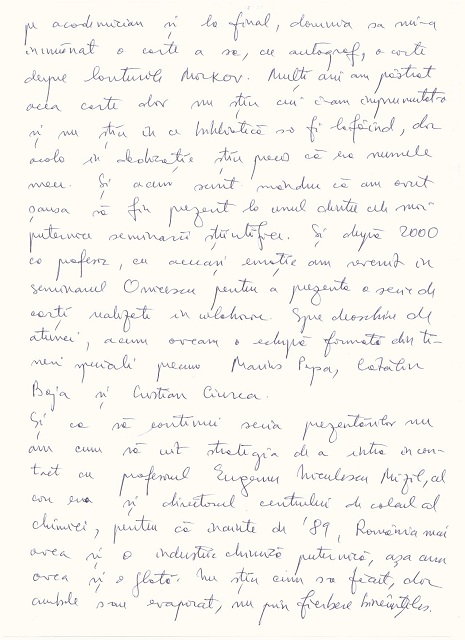 pe academician și la final, domnia sa mi-a
înmânat o carte a sa, cu autograf, o carte
despre lanțurile Markov. Mulți ani am păstrat
acea carte dar nu știu cui i-am împrumutat-o
și nu știu în ce bibliotecă s-o fi lăfăind, dar
acolo în dedicație știu precis că era numele
meu. Și acum sunt mândru că am avut
șansa să fiu prezent la unul dintre cele mai
puternice seminarii științifice. Și după 2000
ca profesor, cu aceeași emoție am revenit în
seminarul Onicescu pentru a prezenta o serie de
cărți realizate în colaborare. Spre deosebire de
atunci, acum aveam o echipă formată din ti-
neri speciali precum Marius Popa, Cătălin
Boja și Cristian Ciurea.
Și ca să continui seria prezentărilor nu
am cum să uit strategia de a intra în con-
tact cu profesorul Eugeniu Niculescu Mizil, al
care era și directorul centrului de calcul al
chimiei, pentru că înainte de '89, România mai
avea și o industrie chimică puternică, așa cum
avea și o flotă. Nu știu cum s-a făcut, dar
ambele s-au evaporat, nu prin fierbere bineînțeles.